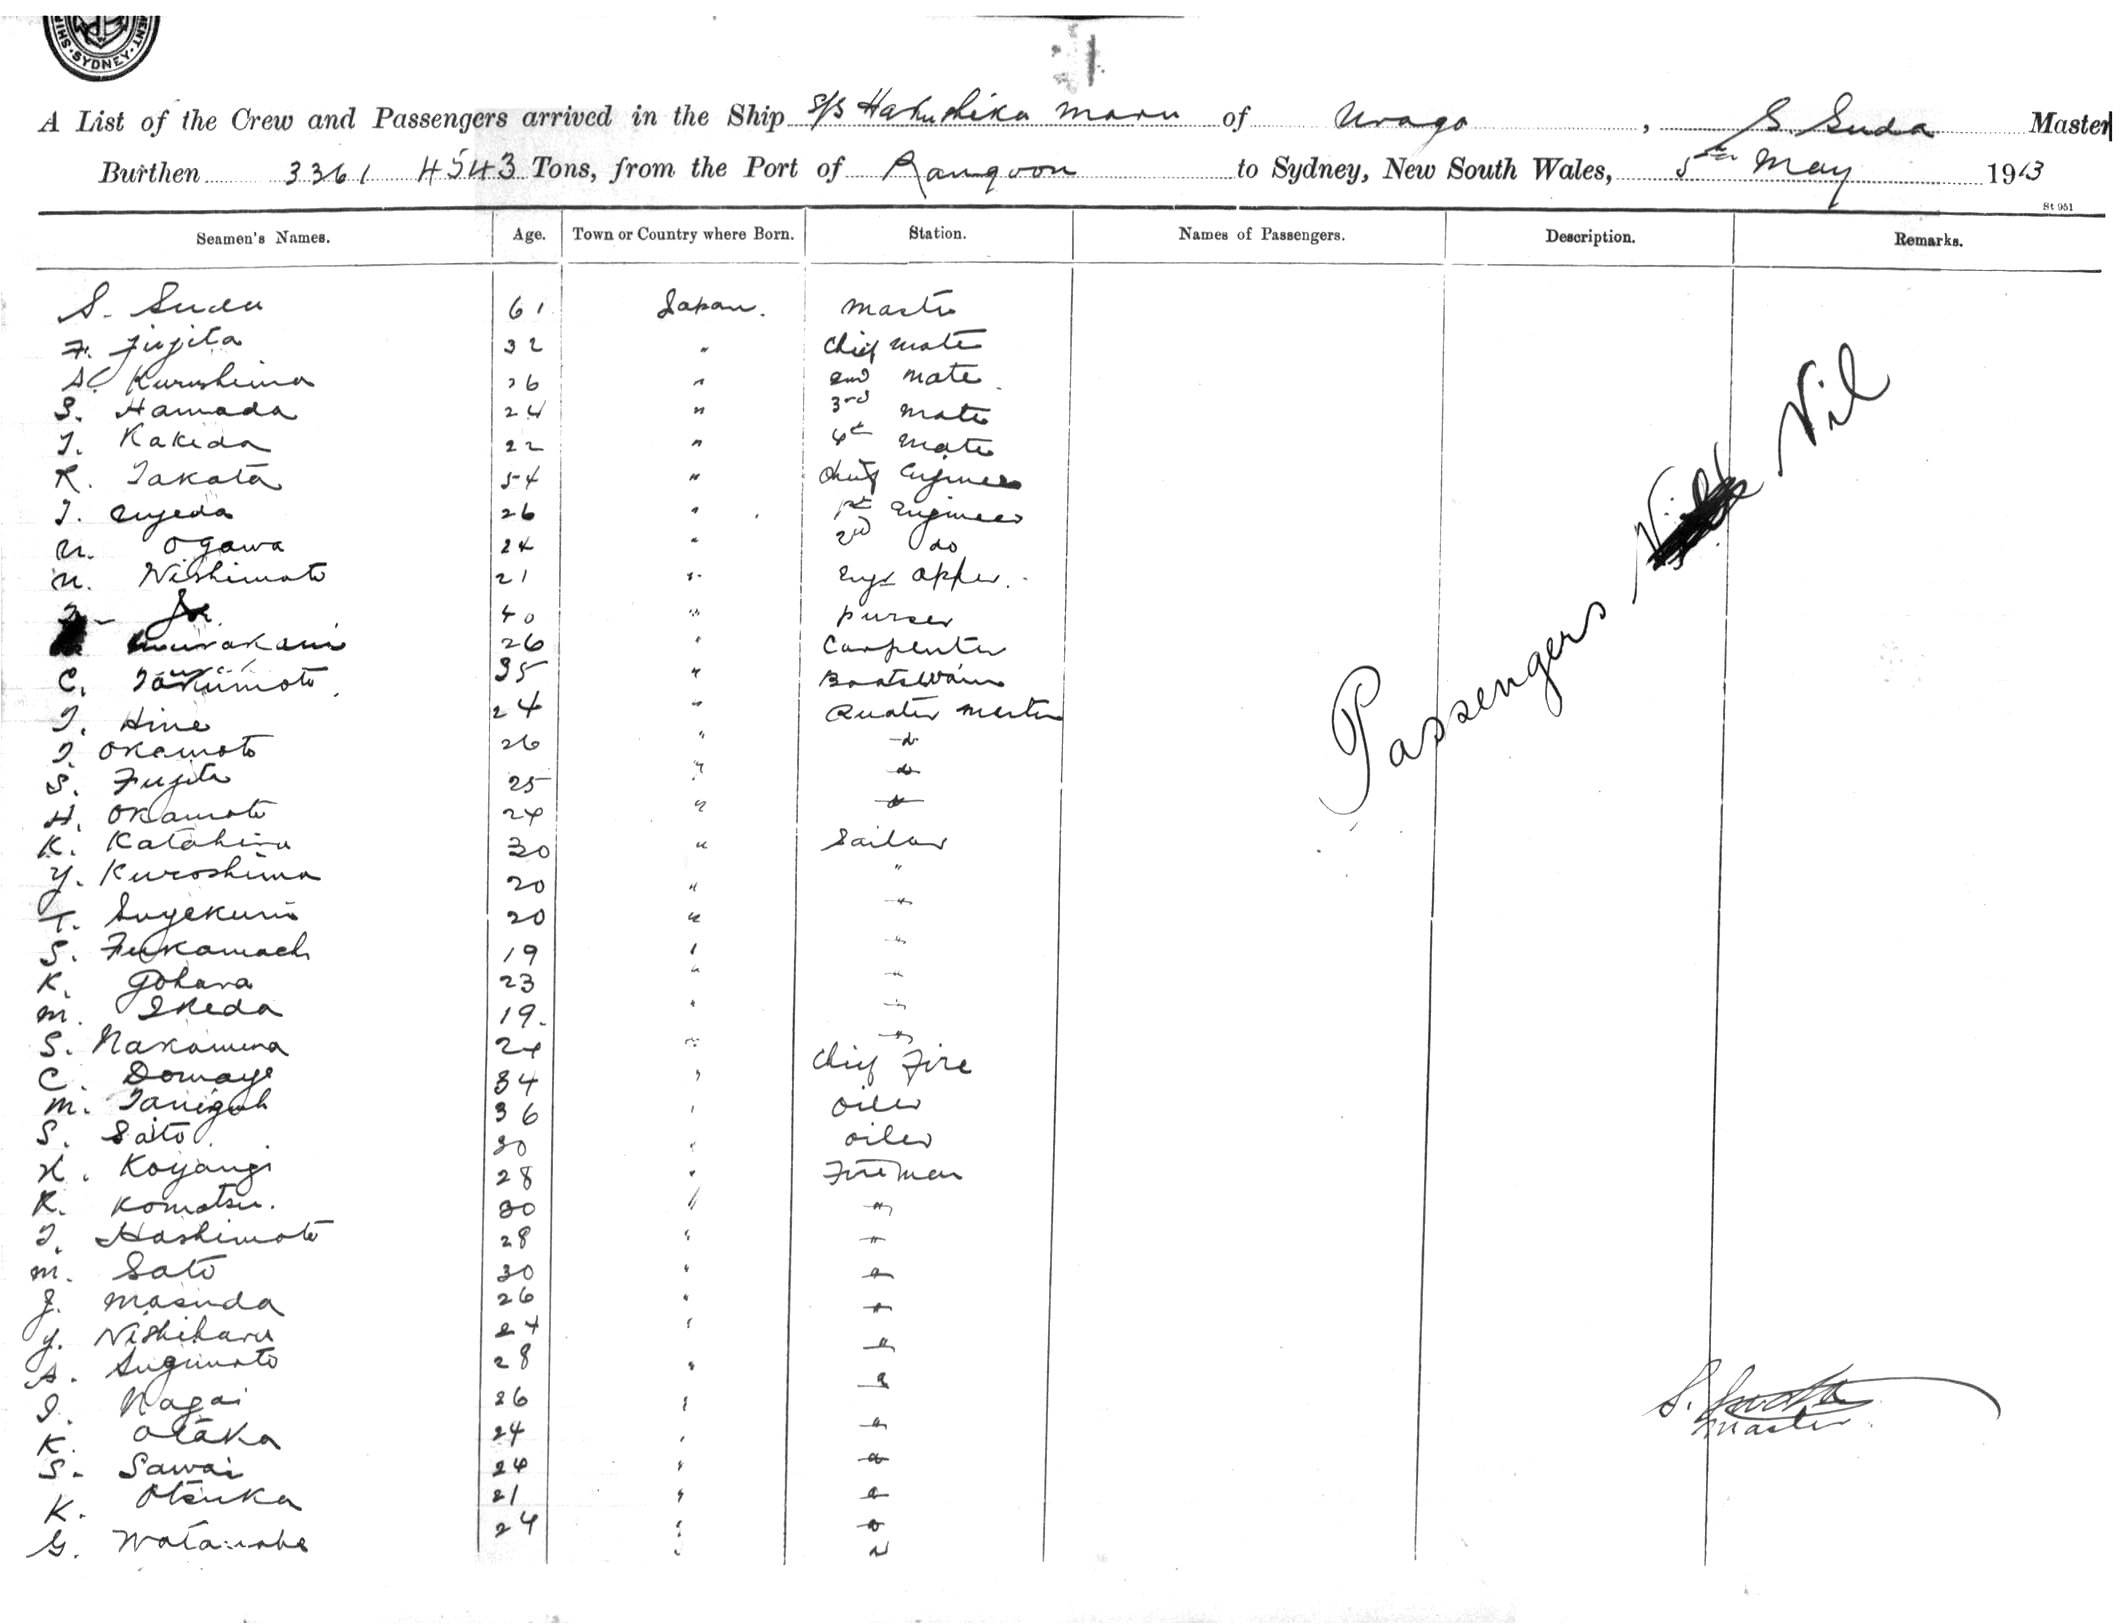 SYDNEY
A List of the Crew and Passengers arrived in the Ship S/S Hakushika Maru of Uraga, S Suda Master
Burthen 3361 4543 Tons, from the Port of Rangoon to Sydney, New South Wales, 5th May 1913
St 951
Seamen's Names. Age. Town or Country where Born. Station. Names of Passengers. Description. Remarks.
S. Suda 61 Japan. Master
F. Fujita 32 " Chief Mate
Kurushima 26 " 2nd Mate
S. Hamada 24 " 3rd Mate
T. Kakeda 22 " 4th Mate
R. Takata 54 " Chief Engineer
T. Uyeda 26 " 1st Engineer
U. Ogawa 24 " 2nd do
N. Nishimoto 21 " Engr Appr.
40 " Purser
Murakami 26 " Carpenter
C. 35 " Boatswain
T. Hine 24 " Quater Master
T. Okamoto 26 " do
S. Fujita 25 " do
H. Okamoto 24 " do
K. Katahira 30 " Sailor
Y. Kuroshima 20 " "
T. Suyekuni 20 " "
S. Fukamachi 19 " "
K. Gohara 23 " "
M. Ikeda 19. " "
S. Nakamura 24 " "
C. Domaye 34 " Chief Fire
M. Taniguch 36 " Oiler
S. Saito 30 " Oiler
K. Koyangi 28 " Fireman
R. Komatsu. 30 " "
T. Hashimoto 28 " "
M. Sato 30 " "
J. Masuda 26 " "
Y. Nishihara 24 " "
A. Sugimoto 28 " "
I. Nagai 26 " "
K. Otaka 24 " "
S. Sawai 24 " "
K. Otsuka 21 " "
G. Watanabe 24 " "
Passengers Nil
S. Suda
Master